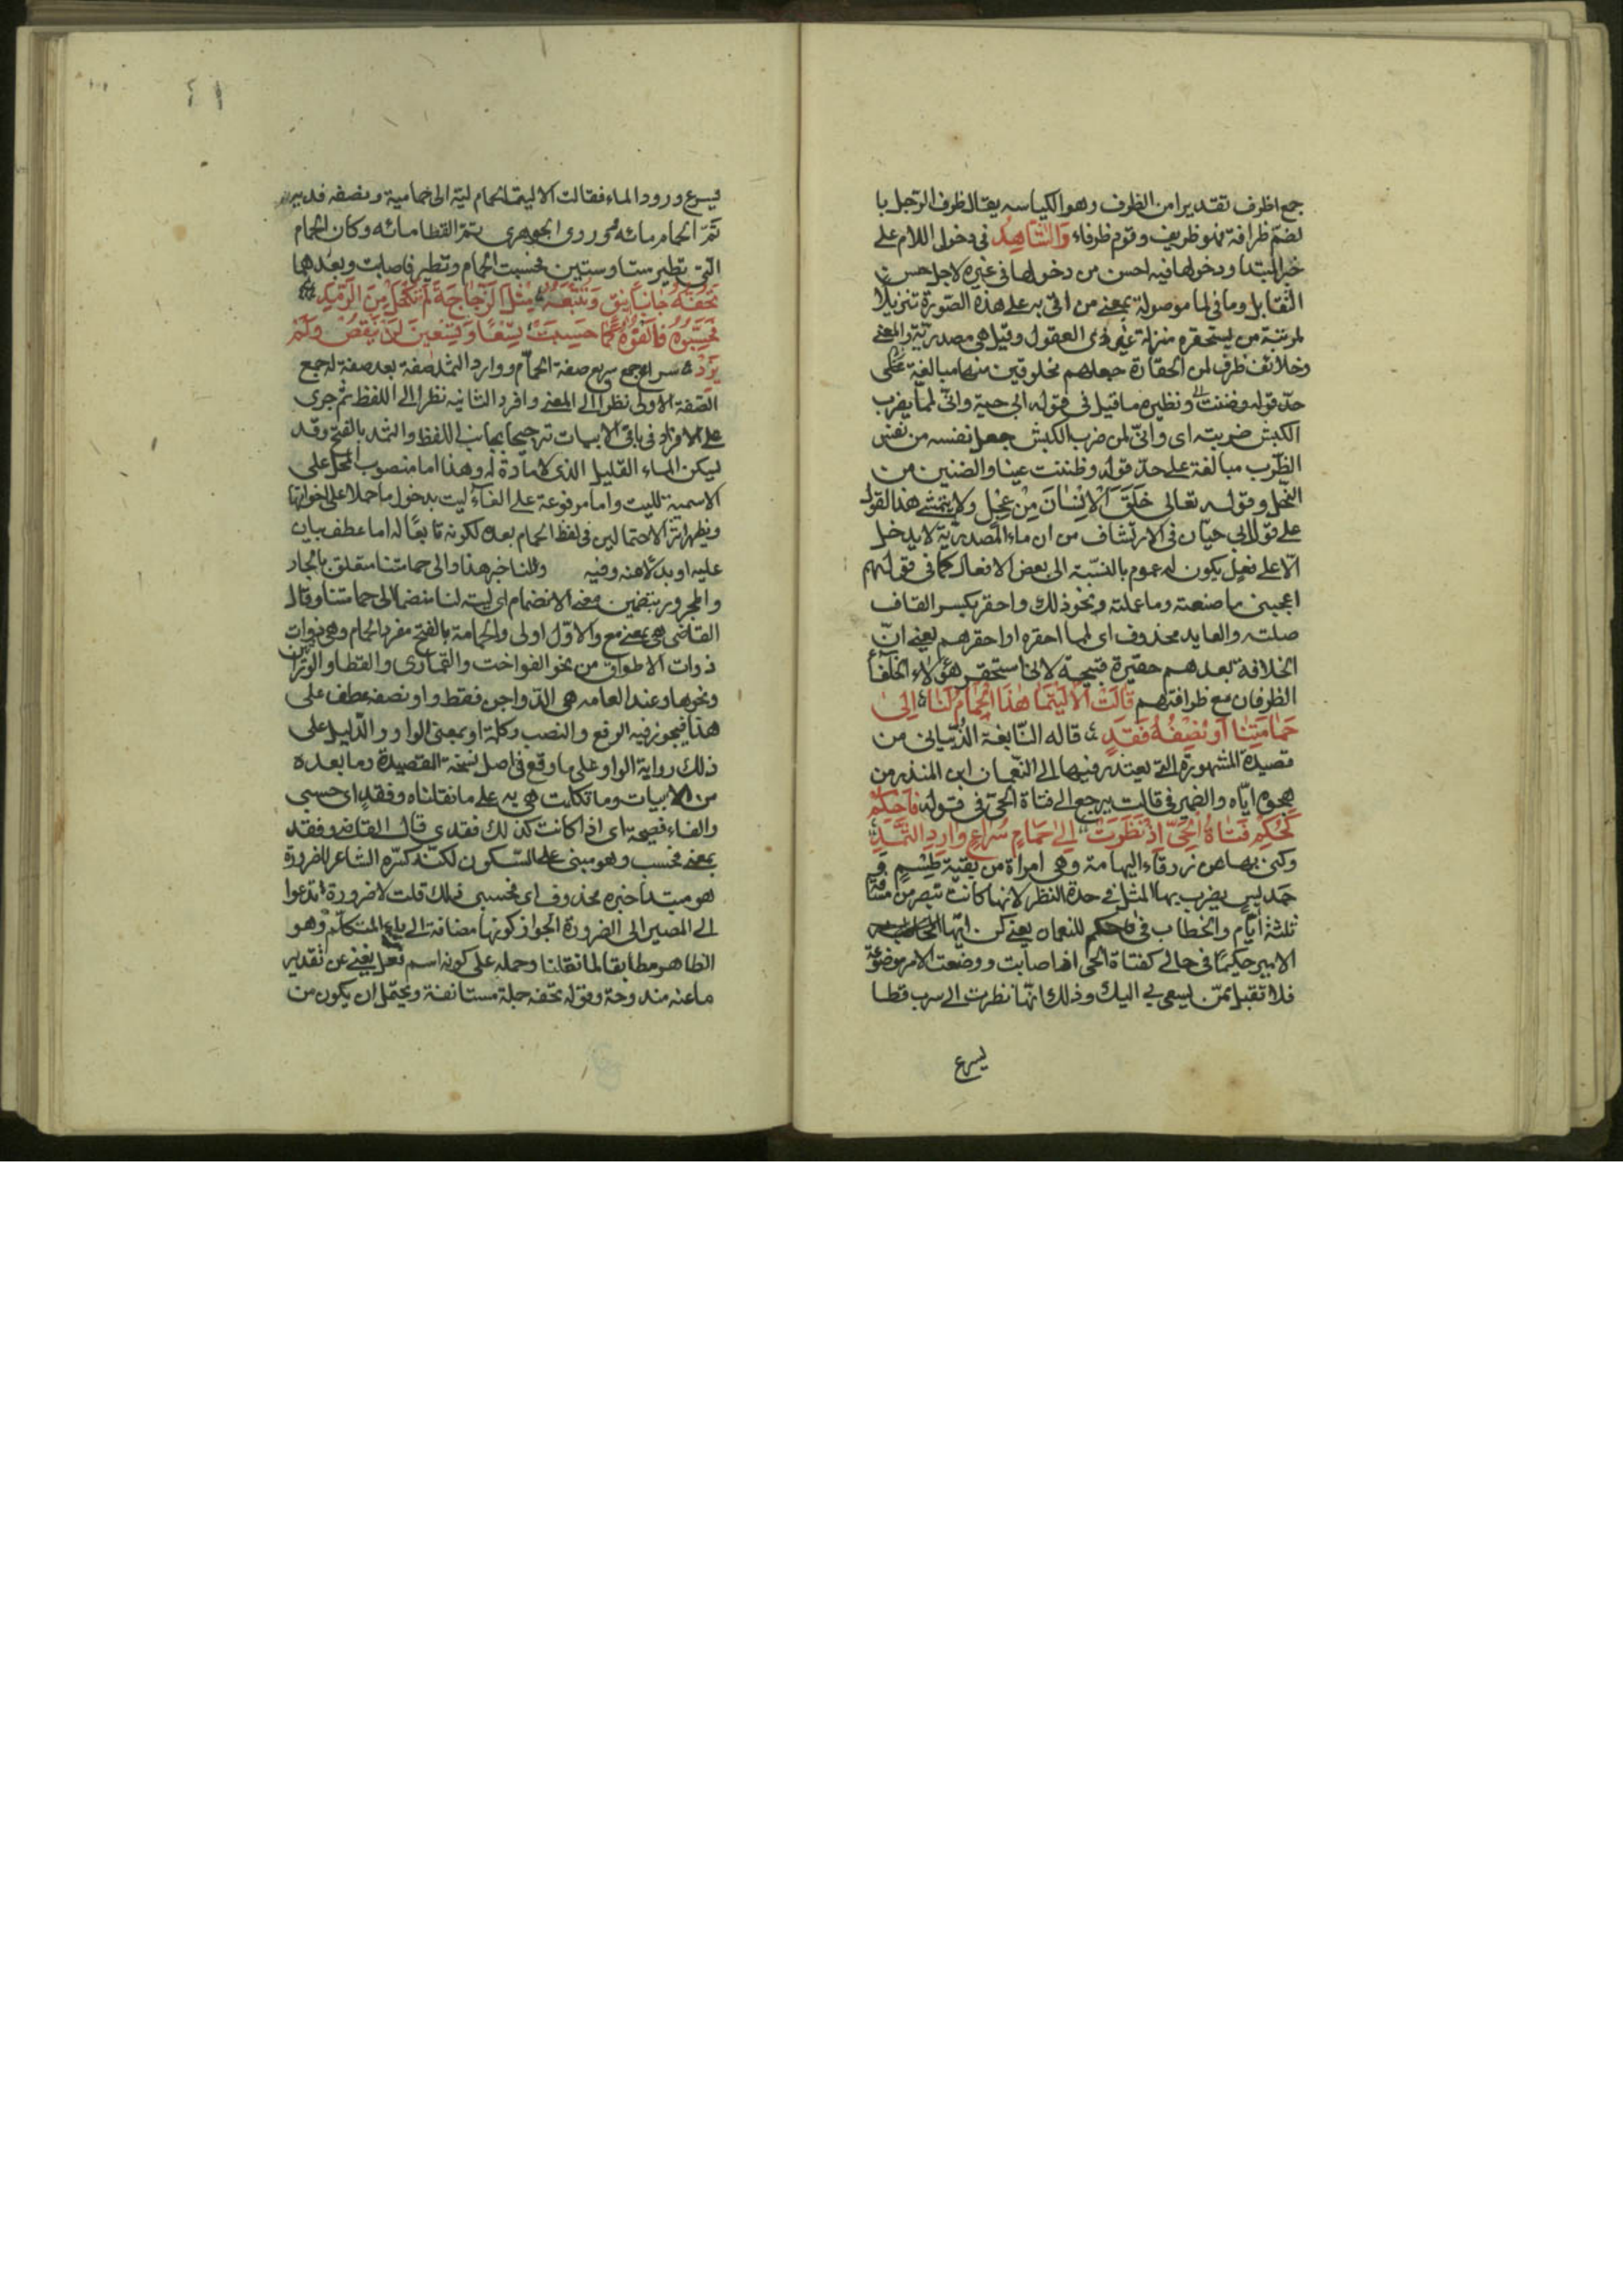 جمع اظرف تقديرا من الظرف وهو الكياسه يقال ظرف الرجل با
لضم ظرافة فهو ظريف وقوم ظرفاء وَالشّاهِدُ في دخول اللام على
خبر المبتدا ودخولها فيه احسن من دخولها في غيره لاجل حسن
التقابل وما في لما موصولة بمعنى من اتى به على هذه الصورة تنزيلا
لمرتبة من يستحقره منزلة غير ذوى العقول وقيل هى مصدرية والمعنى
وخلائف ظرف لمن الحقارة جعلهم مخلوقين منها مبالغة على
حد قوله وضنت ونظيره ما قيل في قوله ابى حية وانى لمما يضرب
الكبش ضربته اى وانى لمن ضرب الكبش جعل نفسه من نفس
الضرب مبالغة على حد قوله وظننت عينا والضنين من
البخل وقوله تعالى خَلَقَ الاِنْسَانَ مِنْ عَجَلٍ ولا يتمشى هذا القول
على قول ابى حيان في الارتشاف من ان ماء المصدرية لا يدخل
الا على فعل يكون له عموم بالنسبة الى بعض الافعال كما في قولهم
اعجبنى ما صنعته وما عملته ونحو ذلك واحقر بكسر القاف
صلته والعايد محذوف اى لمما احقره او احقرهم يعنى انّ
الخلافة بعدهم حقيرة قبيحة لانى استحقر هؤلاء الخلفا
الظرفان مع ظرافتهم قَالَتْ اَلا لَيْتَمَا هٰذَا الْحَمَامُ لَنَا اِلىٰ
حَمَامَتِنَا اَوْ نِصْفُهُ فَقَدِ قاله النابغة الذبيانى من
قصيدة المشهورة التى يعتذر فيها الى النعمان ابن المنذر من
هجوه اياه والضمير في قالت يرجع الى فتاة الحى في قوله فَاحْكُمْ
كَحُكْمِ فَتَاةِ الْحَىِّ اِذْ نَظَرَتْ اِلىٰ حَمَامٍ سُرَاعٍ وَارِدِ الثَّمَدِ
وكنى بها عن زرقاء اليمامة وهى امراة من بقية طسم و
جديس يضرب بها المثل في حدة النظر لانها كانت تبصر من مسافة
ثلثة ايام والخطاب في فاحكم للنعمان يعنى كن ايها المخاطب
الامير حكيما في حالى كفتاة الحى اذا صابت ووضعت الامر موضوعه
فلا تقبل ممن يسعى بى اليك وذلك انها نظرت الى سرب قطا
يسرع
٤١
فيسرع ورود الماء فقالت الا ليتما الحمام ليه الى حماميه ونصفه قديه
تتم الحمام مائه وروى الجوهرى يتم القطا مائه وكان الحمام
التى تطير ستا وستين فحسبت الحمام وتطير فاصابت وبعدهما
تَحُفُّهُ جَانِبَا نِيقٍ وَتُتْبِعُهُ مِثْلَ الزُّجَاجَةِ لَمْ تُكْحَلْ مِنَ الرَّمَدِ
فَحَسَّبُوهُ فَاَلْفَوْهُ كَمَا حَسِبَتْ تِسْعًا وَتِسْعِينَ لَمْ يَنْقُصْ وَلَمْ
يَزِدْ سراع جمع سريع صفة الحمام ووارد الثمد صفة بعد صفة له جمع
الصفة الاولى نظرا الى المعنى وافرد الثانية نظرا الى اللفظ ثم جرى
على الافراد في باقى الابيات ترجيحا بجانب اللفظ والثمد بالفتح وقد
ليكن الماء القليل الذى لا مادة له وهذا اما منصوب المحل على
الاسمية لليت واما مرفوعة على الغاء ليت بدخول ما حملا على اخواتها
ويظهر اثر الاحتمالين في لفظ الحمام بعده لكونه تابعًا له اما عطف بيان
عليه او بدلا عنه وفيه ولنا خبر هذا والى حمامتنا متعلق بالجار
والمجرور بتضمين معنى الانضمام اى ليته لنا منضما الى حمامتنا وقال
القاضى هى بمعنى مع والاول اولى والحمامة بالفتح مفرد الحمام وهى ذوات
ذوات الاطواق من نحو الفواخت والقمارى والقطا والوراشين
ونحوها وعند العامه هى الدواجن فقط واو نصفه عطف على
هذا فيجوز فيه الرفع والنصب وكلمة او بمعنى الواو والدليل على
ذلك رواية الواو على ما وقع في اصل نسخة القصيدة وما بعده
من الابيات وما تكلمت هى به على ما نقلناه وفقدٍ اى حسبى
والفاء فصيحة اى اذا كانت كذلك فقدى قال القاضى وفقد
بمعنى فحسب وهو مبنى على السكون لكنه كسره الشاعر للضرورة
هو مبتدا خبره محذوف اى فحسبى ذلك قلت لا ضرورة تدعوا
الى المصير الى الضرورة الجواز كونها مضافة الى ياء المتكلم وهو
الظاهر مطابقا لما نقلنا وحمله على كونه اسم فعل يغنى عن تقدير
ما عنه مندوحة وقوله تحفه جملة مستانفة ويحتمل ان يكون من